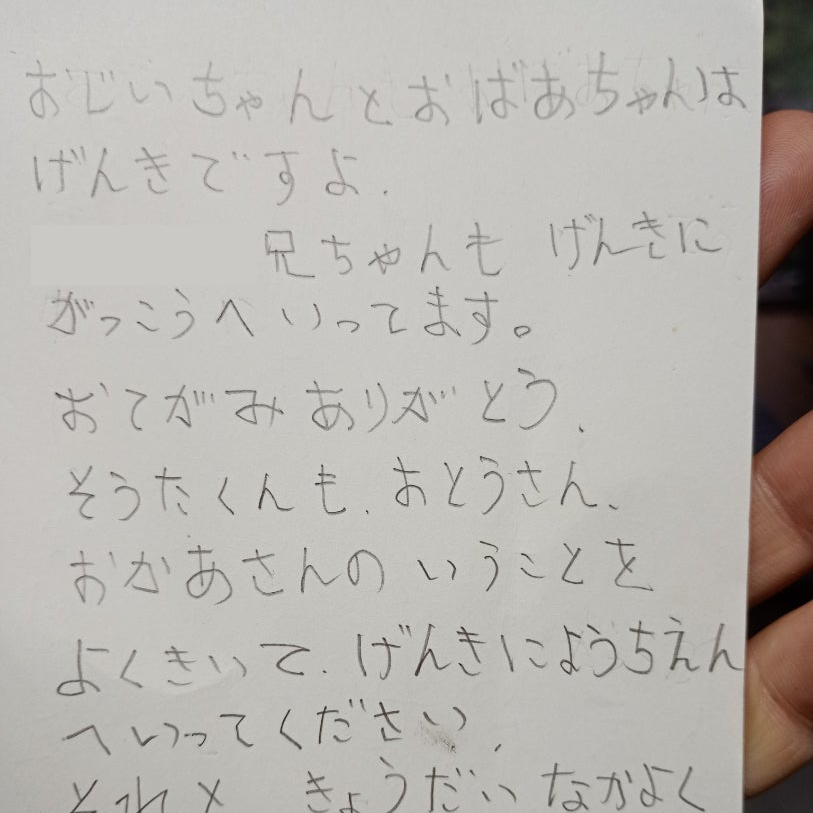 おじいちゃんとおばあちゃんは
げんきですよ.
兄ちゃんも げんきに
がっこうへいってます。
おてがみありがとう、
そうたくんも、おとうさん、
おかあさんの いうことを
よくきいて、げんきにようちえん
へいってください、
それと きょうだいなかよく